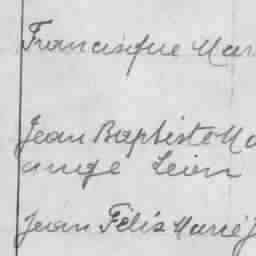 Francisque Mar
Jean Baptiste Ma
ange Léon
Jean Félix Marie J